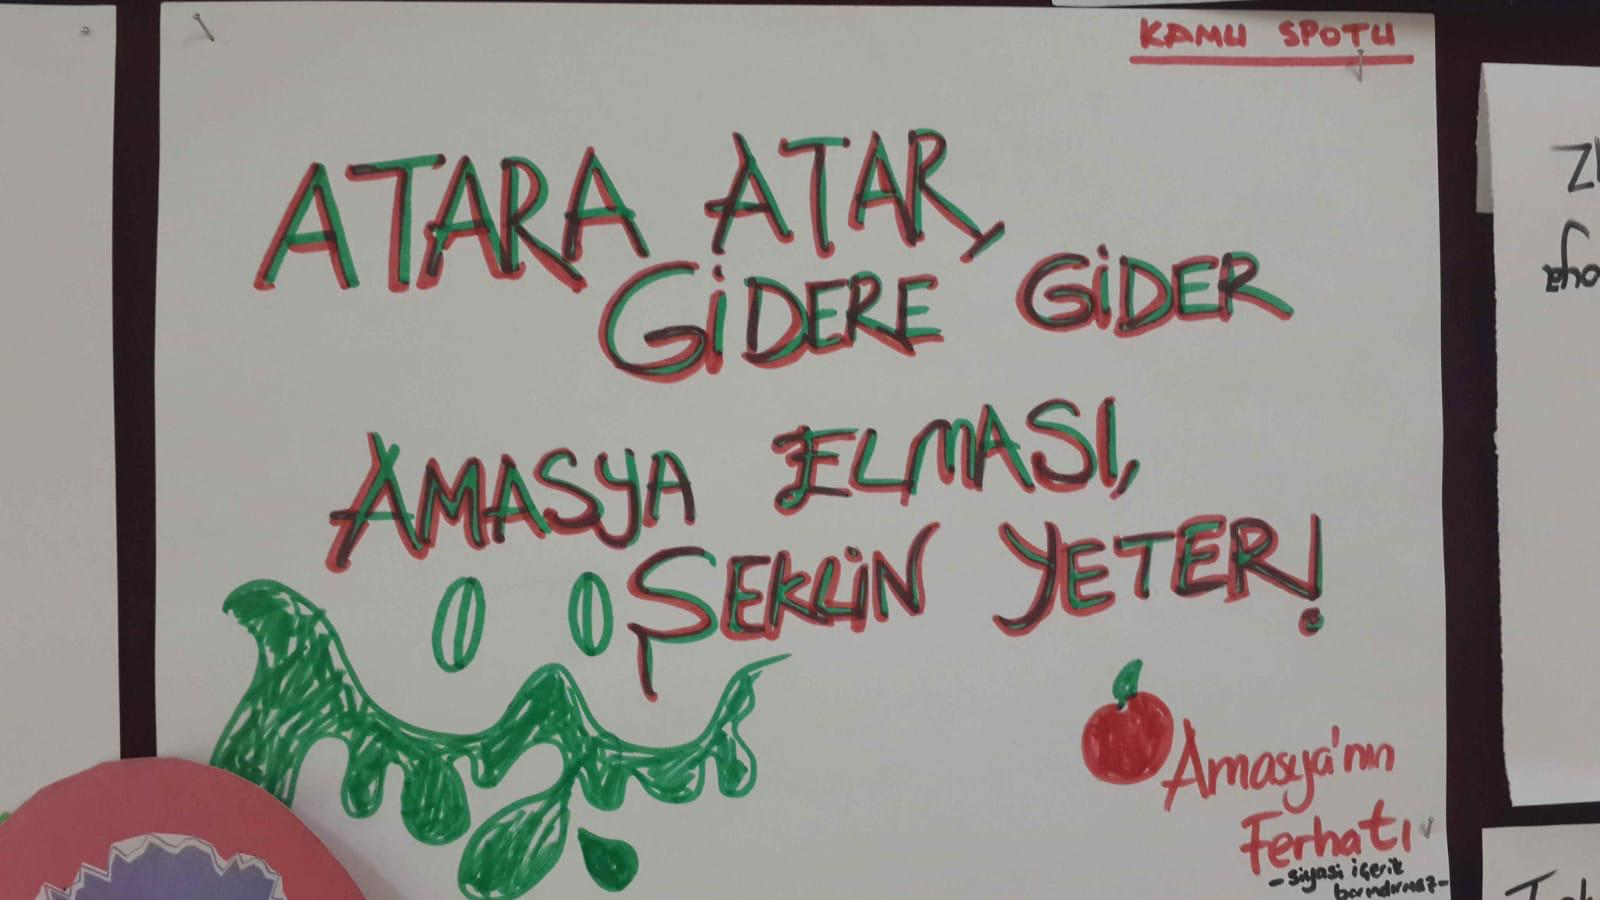 KAMU SPOTU
ATARA ATAR,
GİDERE GİDER
AMASYA ELMASI,
ŞEKLİN YETER!
Amasya'nın
Ferhatı
-siyasi içerik
barındırmaz-